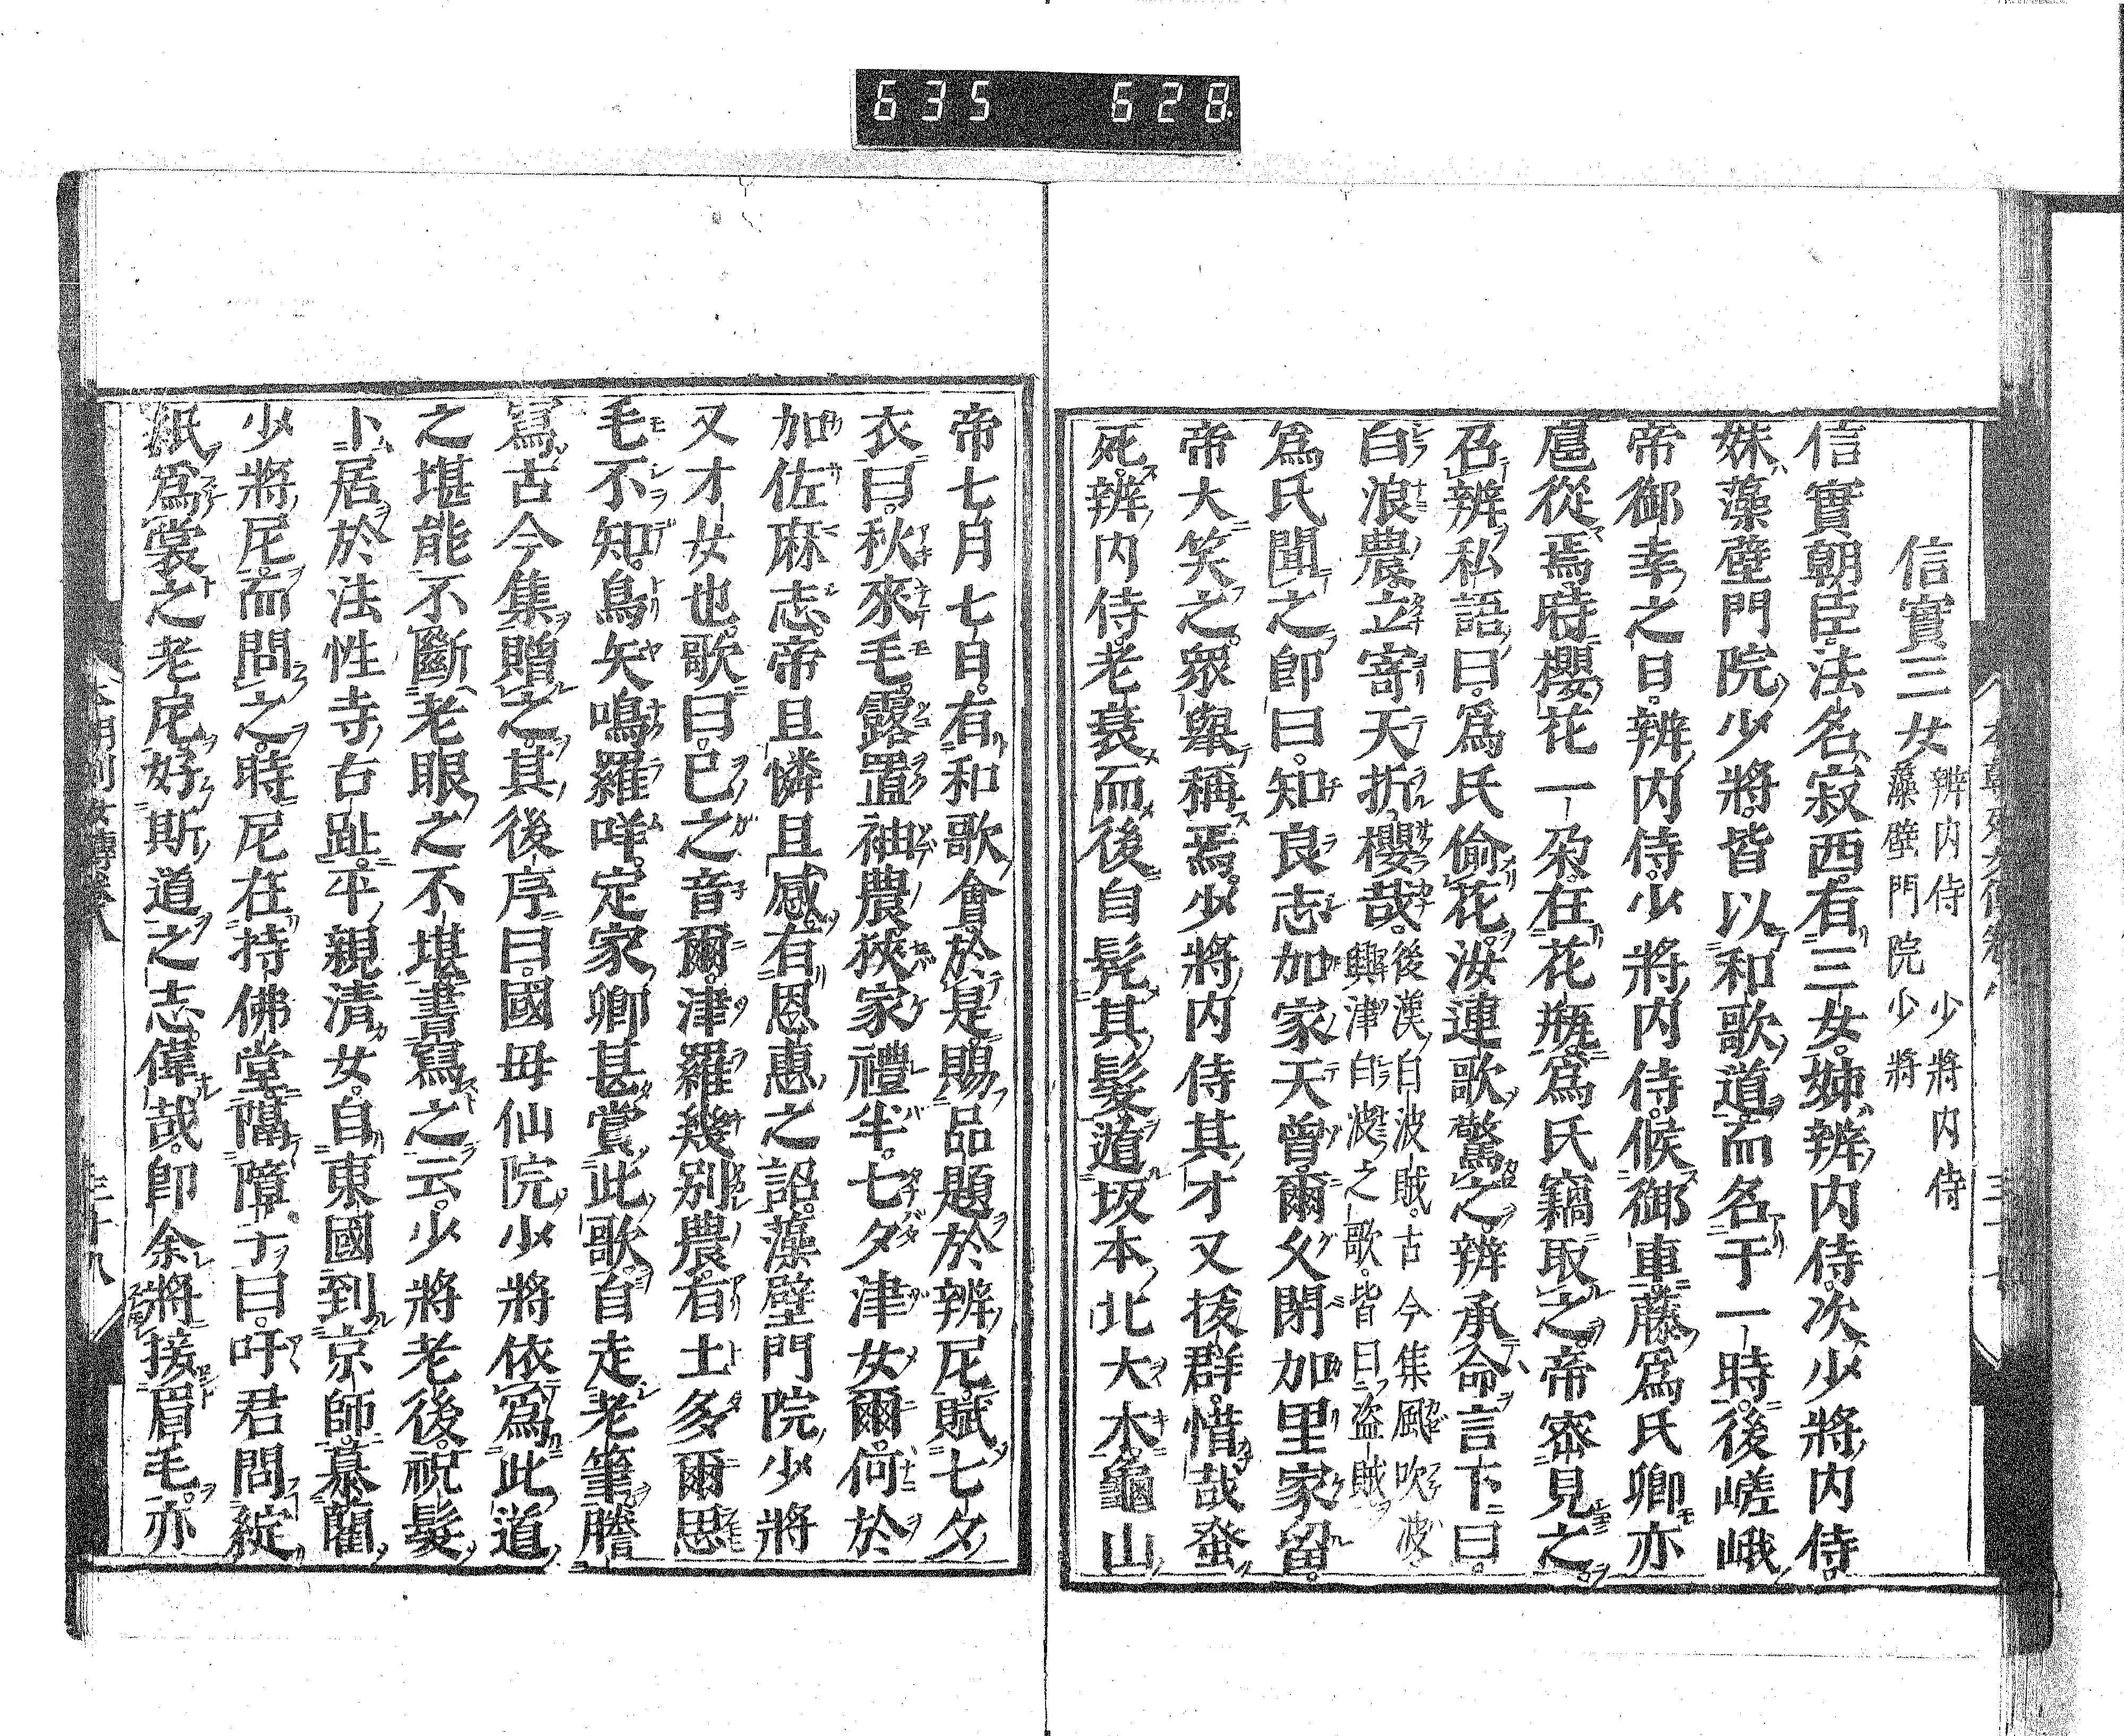 635 628
信實三女 辨内侍 少將内侍
藻壁門院少將
信實朝臣。法名寂西。有三女。姊辨内侍。次少將内侍。
妹藻壁門院少將。皆以和歌道而名于一時。後嵯峨
帝御幸之日。辨内侍。少將内侍。候御車。藤爲氏卿亦
扈從焉。時櫻花一朶。在花瓶。爲氏竊取之。帝密見之
召辨私語曰。爲氏偷花。汝連歌驚之。辨承命言下曰。
白浪農。立寄天折。櫻哉。後漢白波賊。古今集風吹波。
興津白波之歌。皆曰盗賊。
爲氏聞之即曰。知良志加家天曾。爾久閉加里家留。
帝大笑之。衆舉稱焉。少將内侍其才又拔群。惜哉蚤
死。辨内侍。老衰而後自髠其髮。遁坂本北大木。龜山
帝七月七日。有和歌會於是賜品題於辨尼。賦七夕
衣曰。秋來毛。露置袖農。狹家禮半。七夕津女爾。何於
加佐麻志。帝且憐且感。有恩惠之詔。藻壁門院少將
又才女也。歌曰。已之音爾。津羅幾別農。有土多爾思
毛不知。鳥矢鳴羅咩。定家卿甚賞此歌。自走老筆謄
寫古今集贈之。其後序曰。國母仙院少將依爲此道
之堪能不斷老眼之不堪書寫之云。少將老後。祝髮
卜居於法性寺古趾。平親清女。自東國到京師。慕藺
少將尼。而問之。時尼在持佛堂。隔障子曰。吁君問綻
紙爲裳之老尼。好斯道之志。偉哉。即余將接眉毛。亦
本朝列女傳卷八 三十八